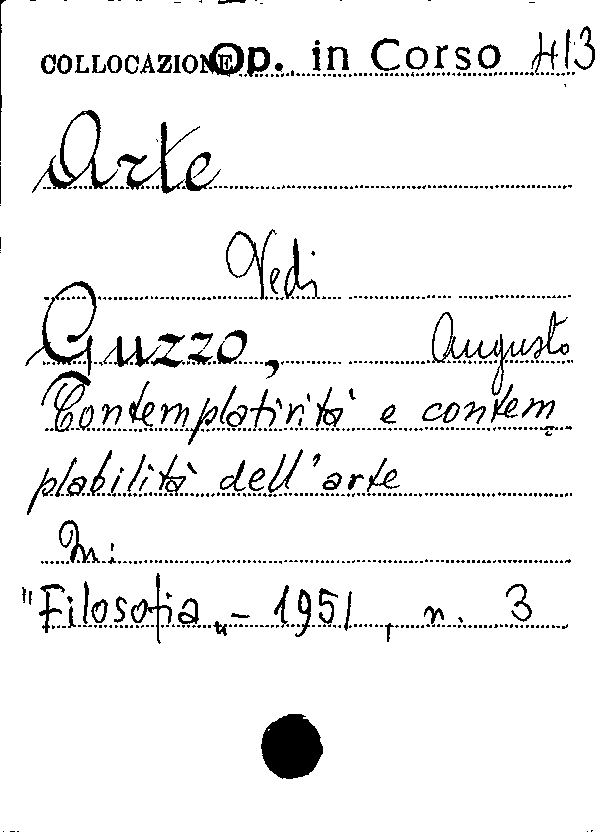 COLLOCAZIONE Op. in Corso 413
Arte
Vedi
Guzzo, Augusto
Contemplatività e contem
plabilità dell'arte
In:
"Filosofia„ - 1951, n. 3